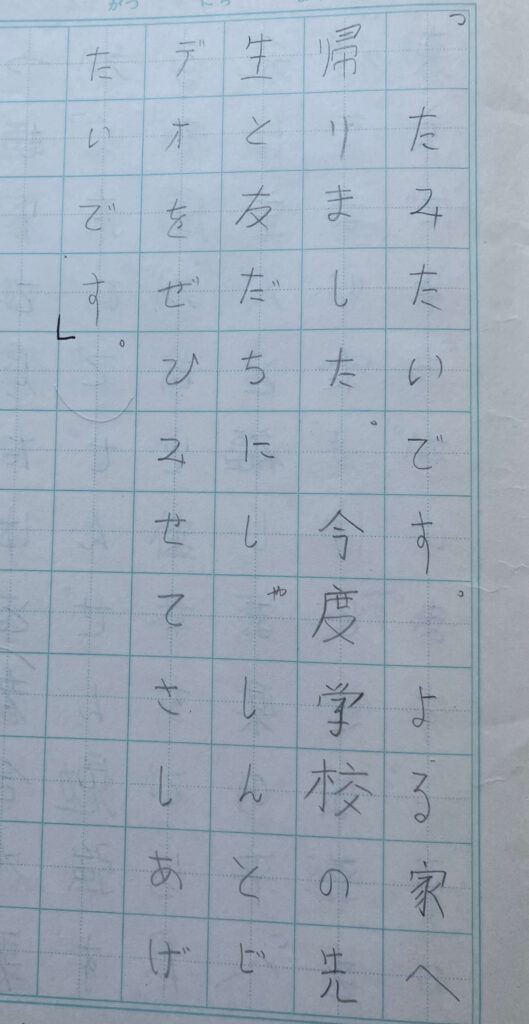 ったみたいです。よる家へ
帰りました。今度学校の先
生と友だちにしゃしんとビ
デオをぜひみせてさしあげ
たいです。